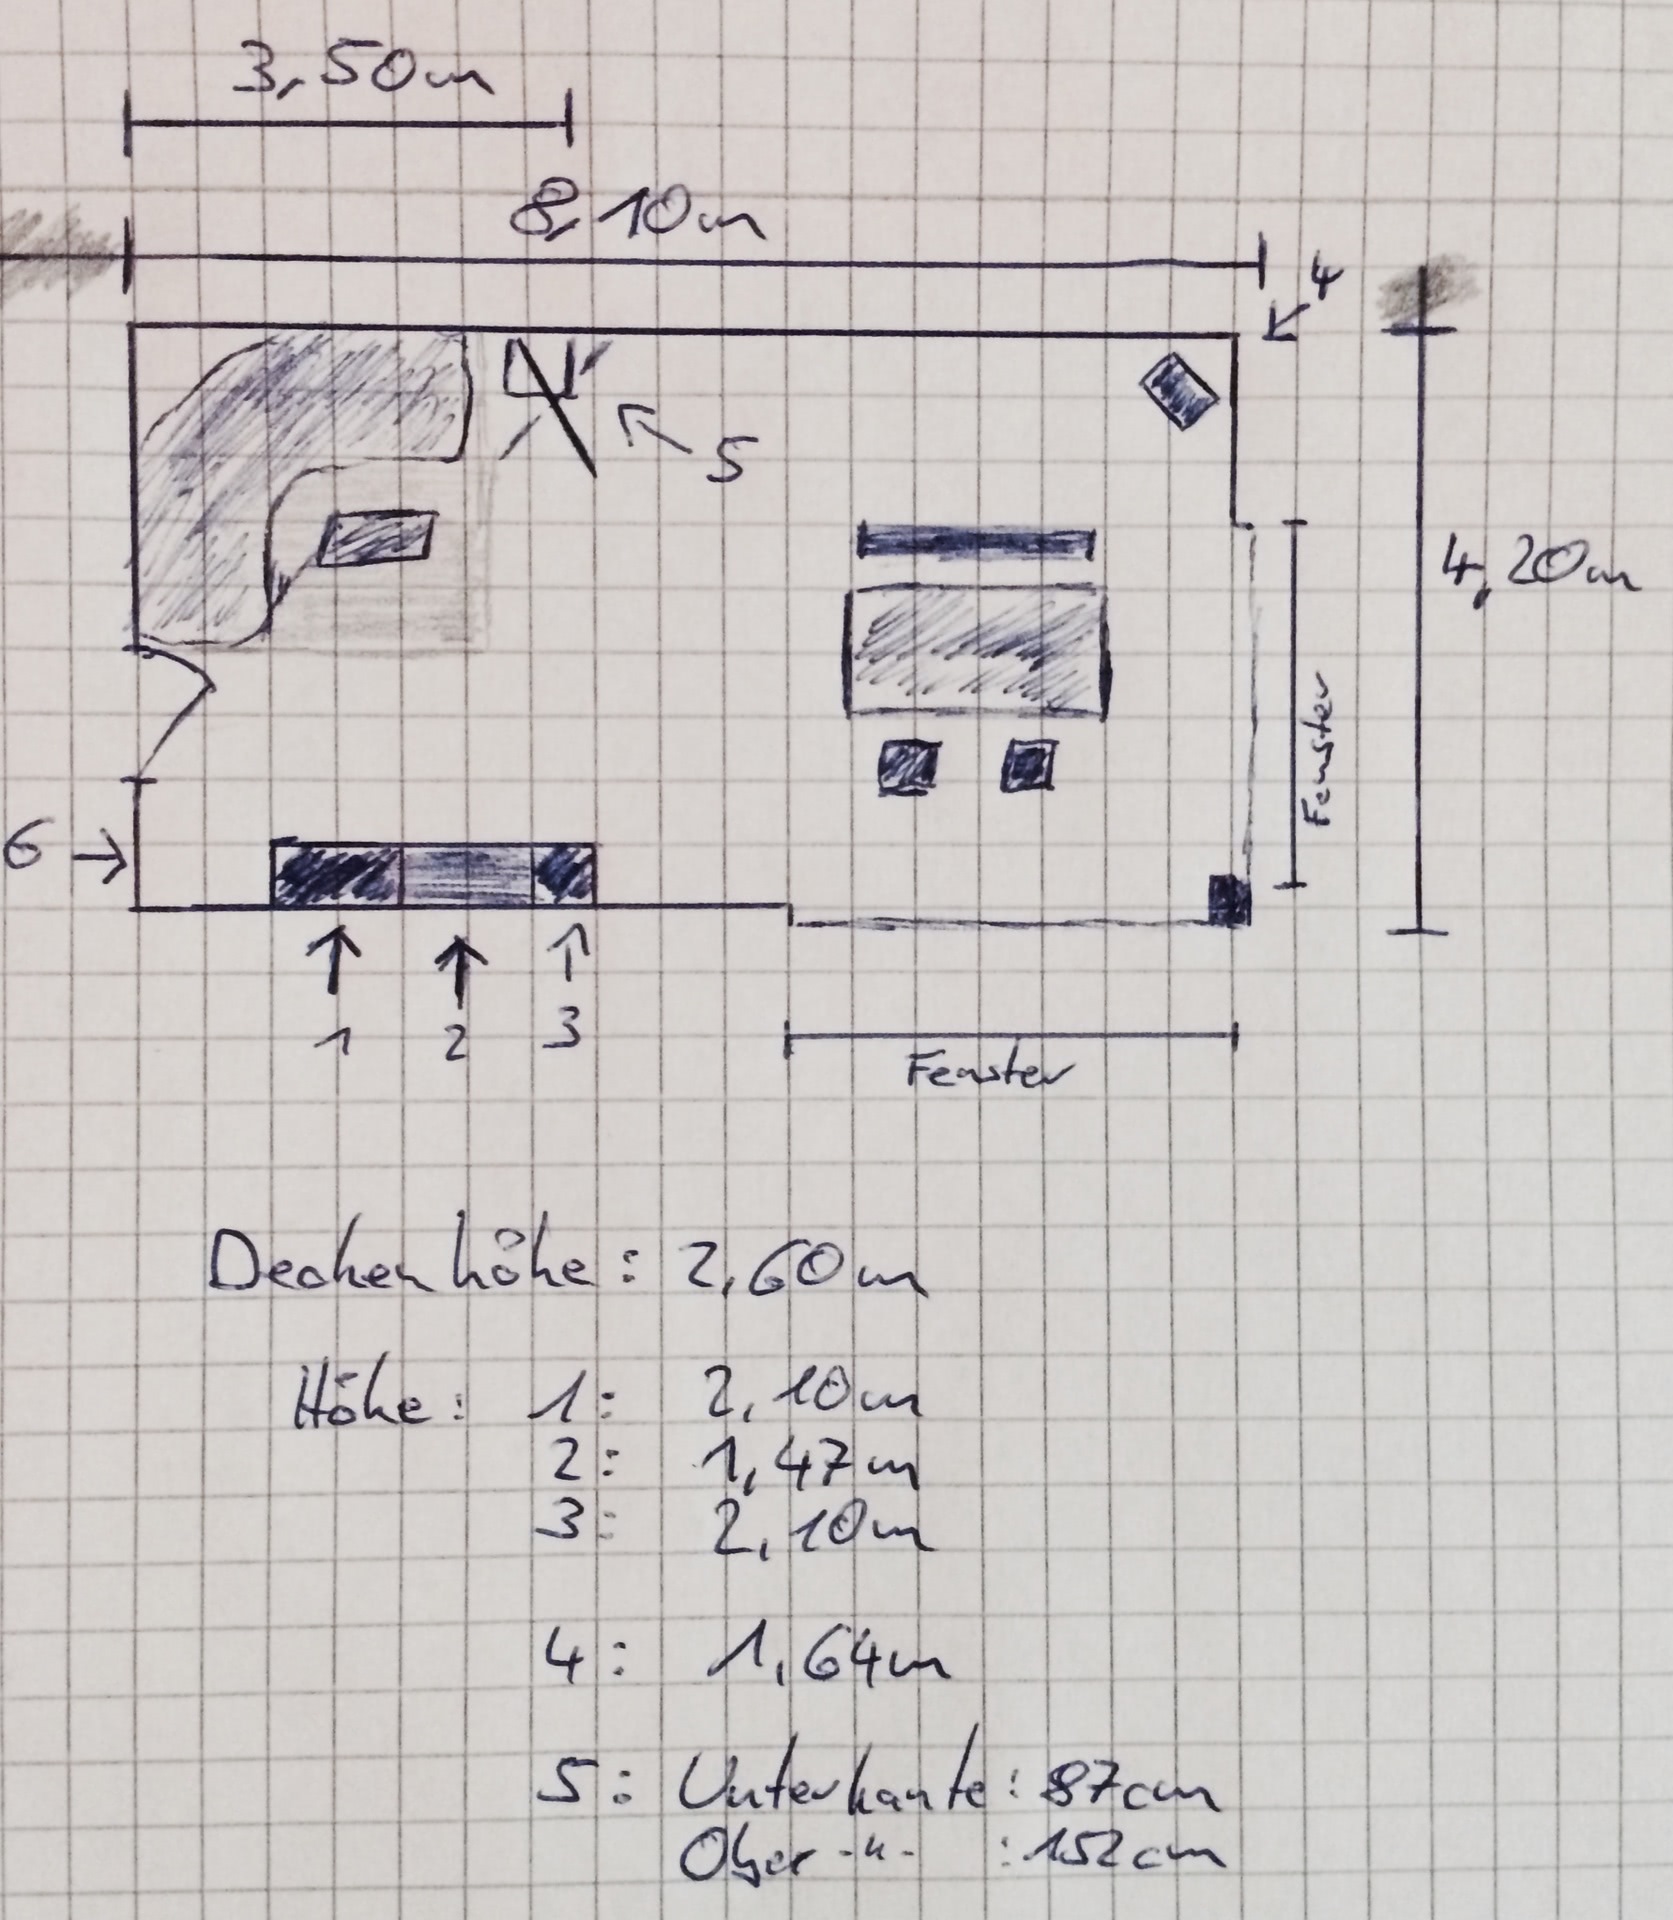 3,50m
8,10m
4
5
4,20m
Fenster
6
1 2 3
Fenster
Deckenhöhe: 2,60m
Höhe: 1: 2,10m
2: 1,47m
3: 2,10m
4: 1,64m
5: Unterkante: 87cm
Ober -"- : 152cm